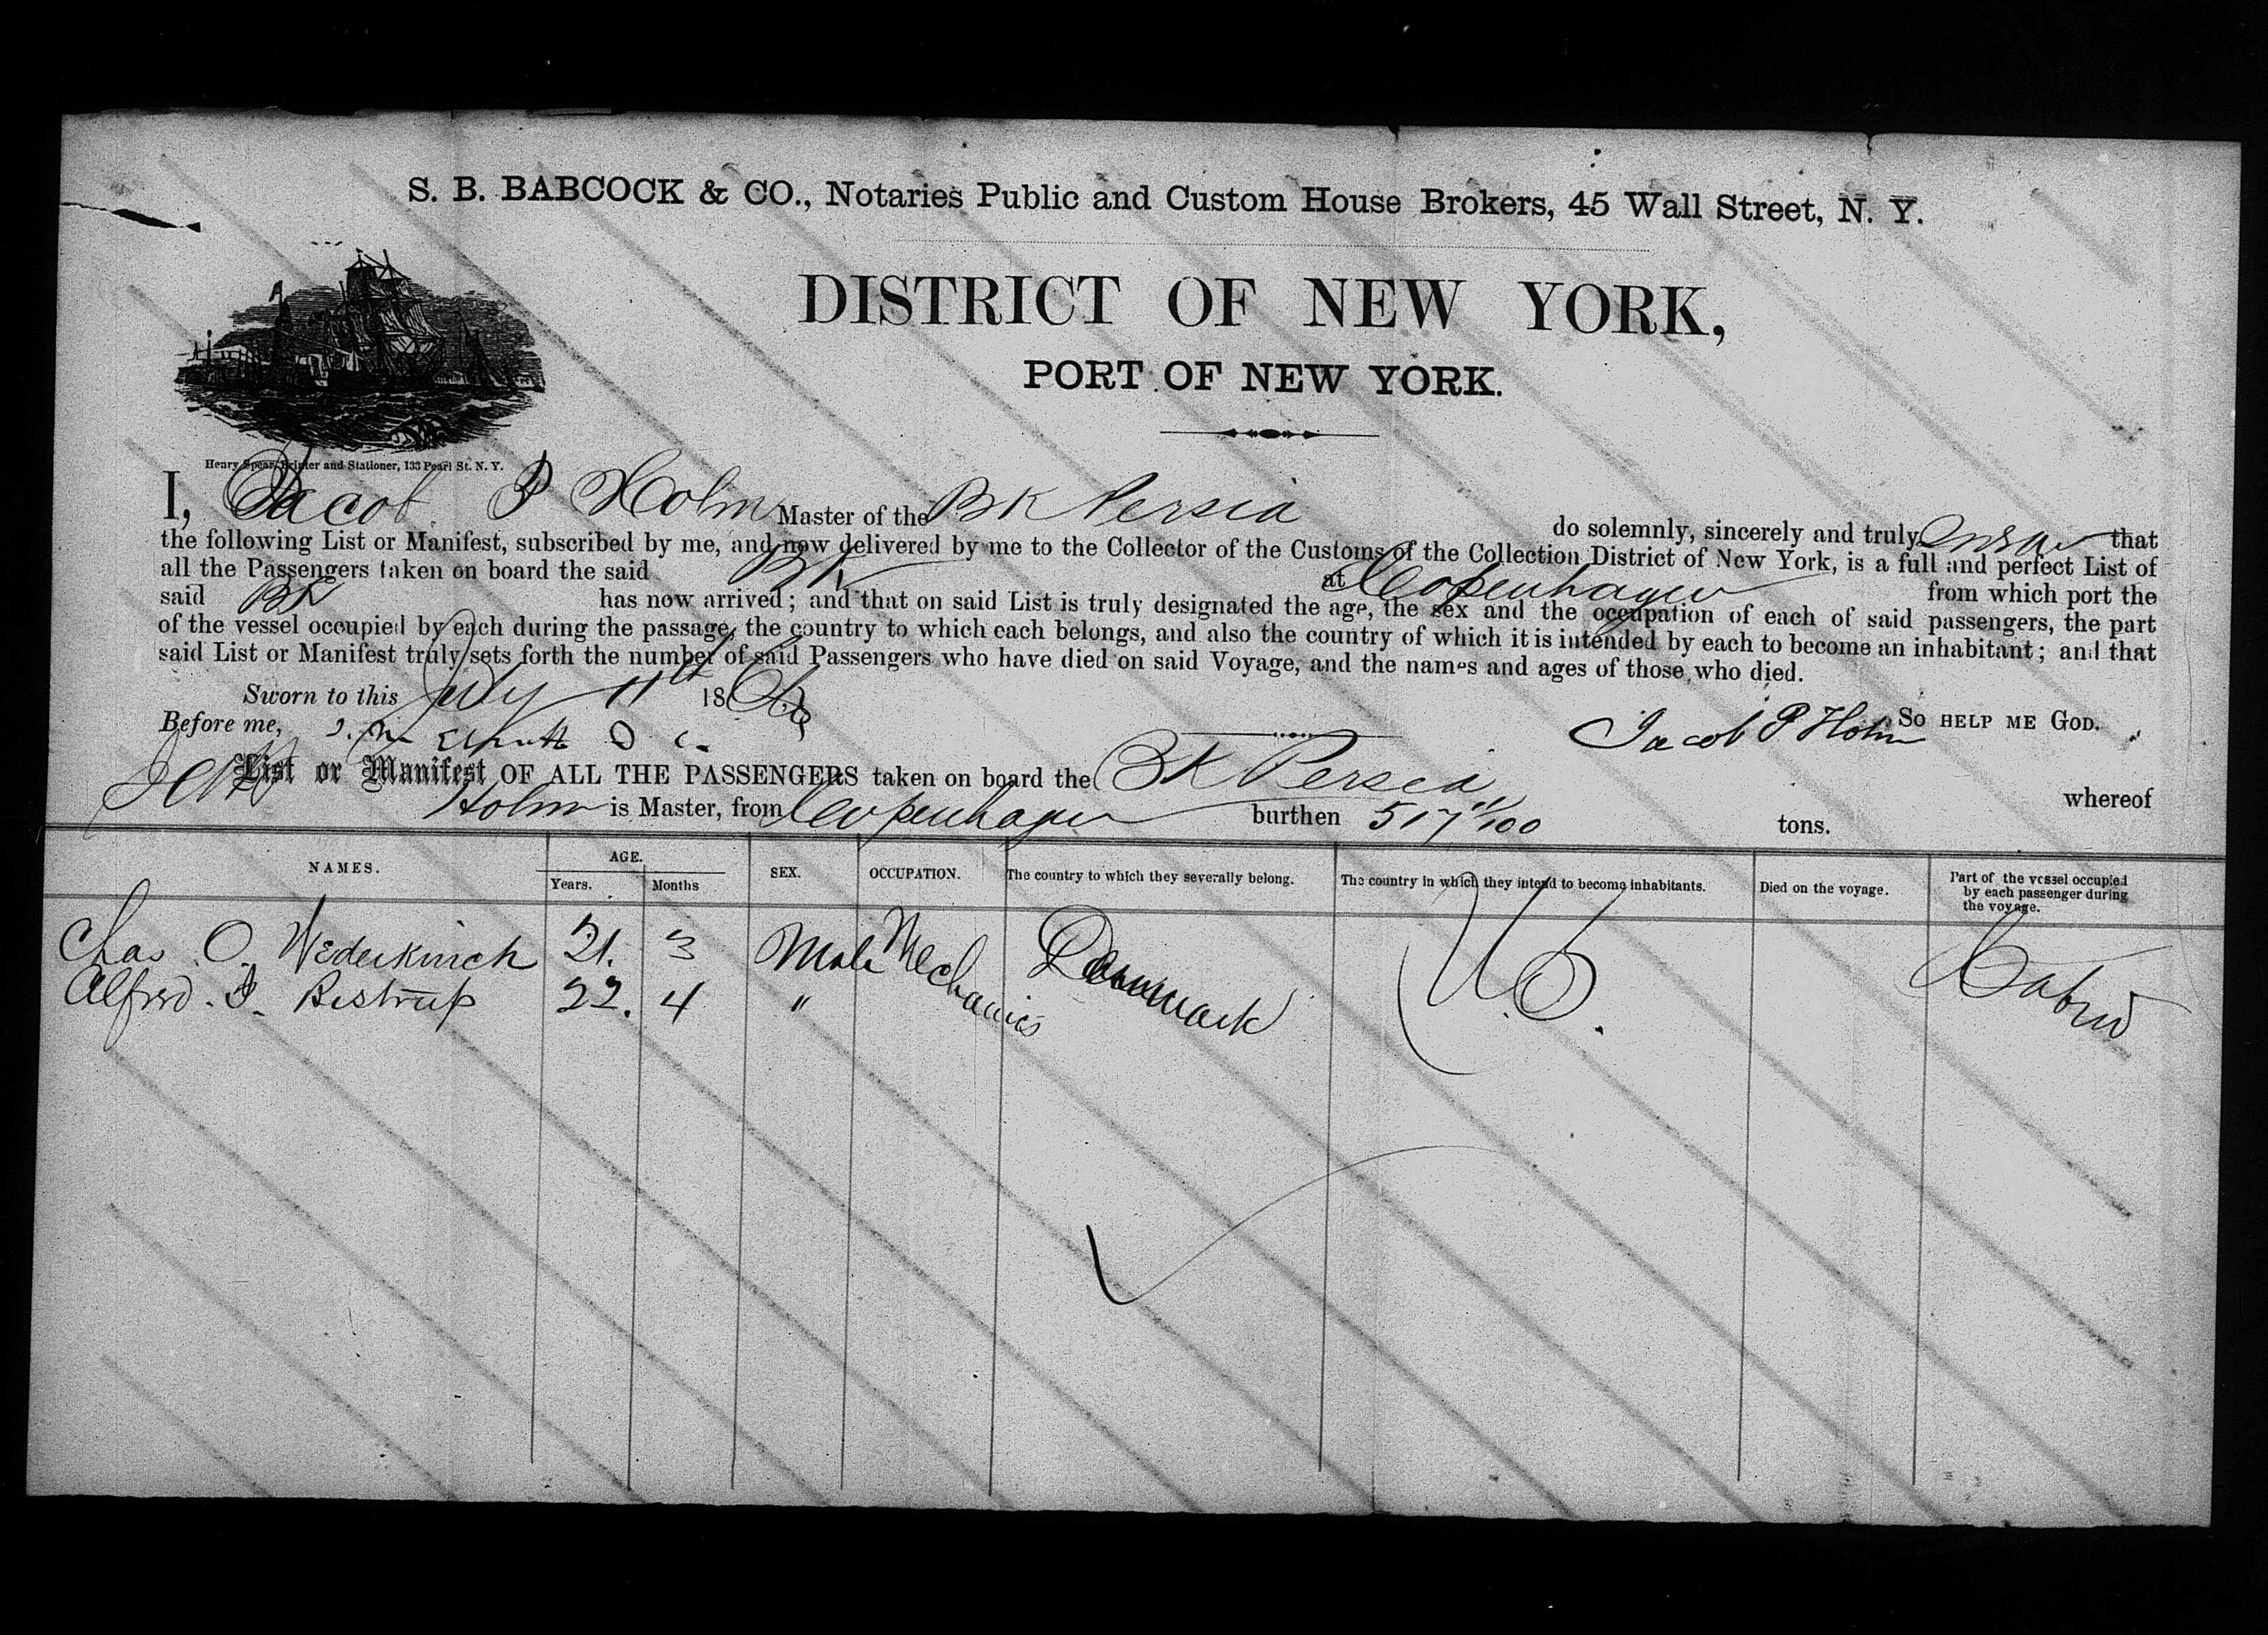 S. B. BABCOCK & CO., Notaries Public and Custom House Brokers, 45 Wall Street, N. Y.
DISTRICT OF NEW YORK,
PORT OF NEW YORK.
Henry Spear, Printer and Stationer, 133 Pearl St. N. Y.
I, Jacob P Holm Master of the Bk Persia do solemnly, sincerely and truly swear that
the following List or Manifest, subscribed by me, and now delivered by me to the Collector of the Customs of the Collection District of New York, is a full and perfect List of
all the Passengers taken on board the said Bk at Copenhagen from which port the
said Bk has now arrived; and that on said List is truly designated the age, the sex and the occupation of each of said passengers, the part
of the vessel occupied by each during the passage, the country to which each belongs, and also the country of which it is intended by each to become an inhabitant; and that
said List or Manifest truly sets forth the number of said Passengers who have died on said Voyage, and the names and ages of those who died.
Sworn to this July 11th 186
So HELP ME GOD.
Before me,
Jacob P Holm
List or Manifest OF ALL THE PASSENGERS taken on board the Bk Persia whereof
Holm is Master, from Copenhagen burthen 517 11/100 tons.
NAMES. AGE. Years. Months SEX. OCCUPATION. The country to which they severally belong. The country in which they intend to become inhabitants. Died on the voyage. Part of the vessel occupied by each passenger during the voyage.
Chas O. Wederkinch 21. 3 Male Mechanics Denmark U.S. Cabin
Alfred . P. Bistrup 22. 4 "